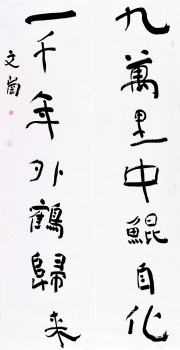 九萬里中鯤自化
一千年外鶴歸來
文